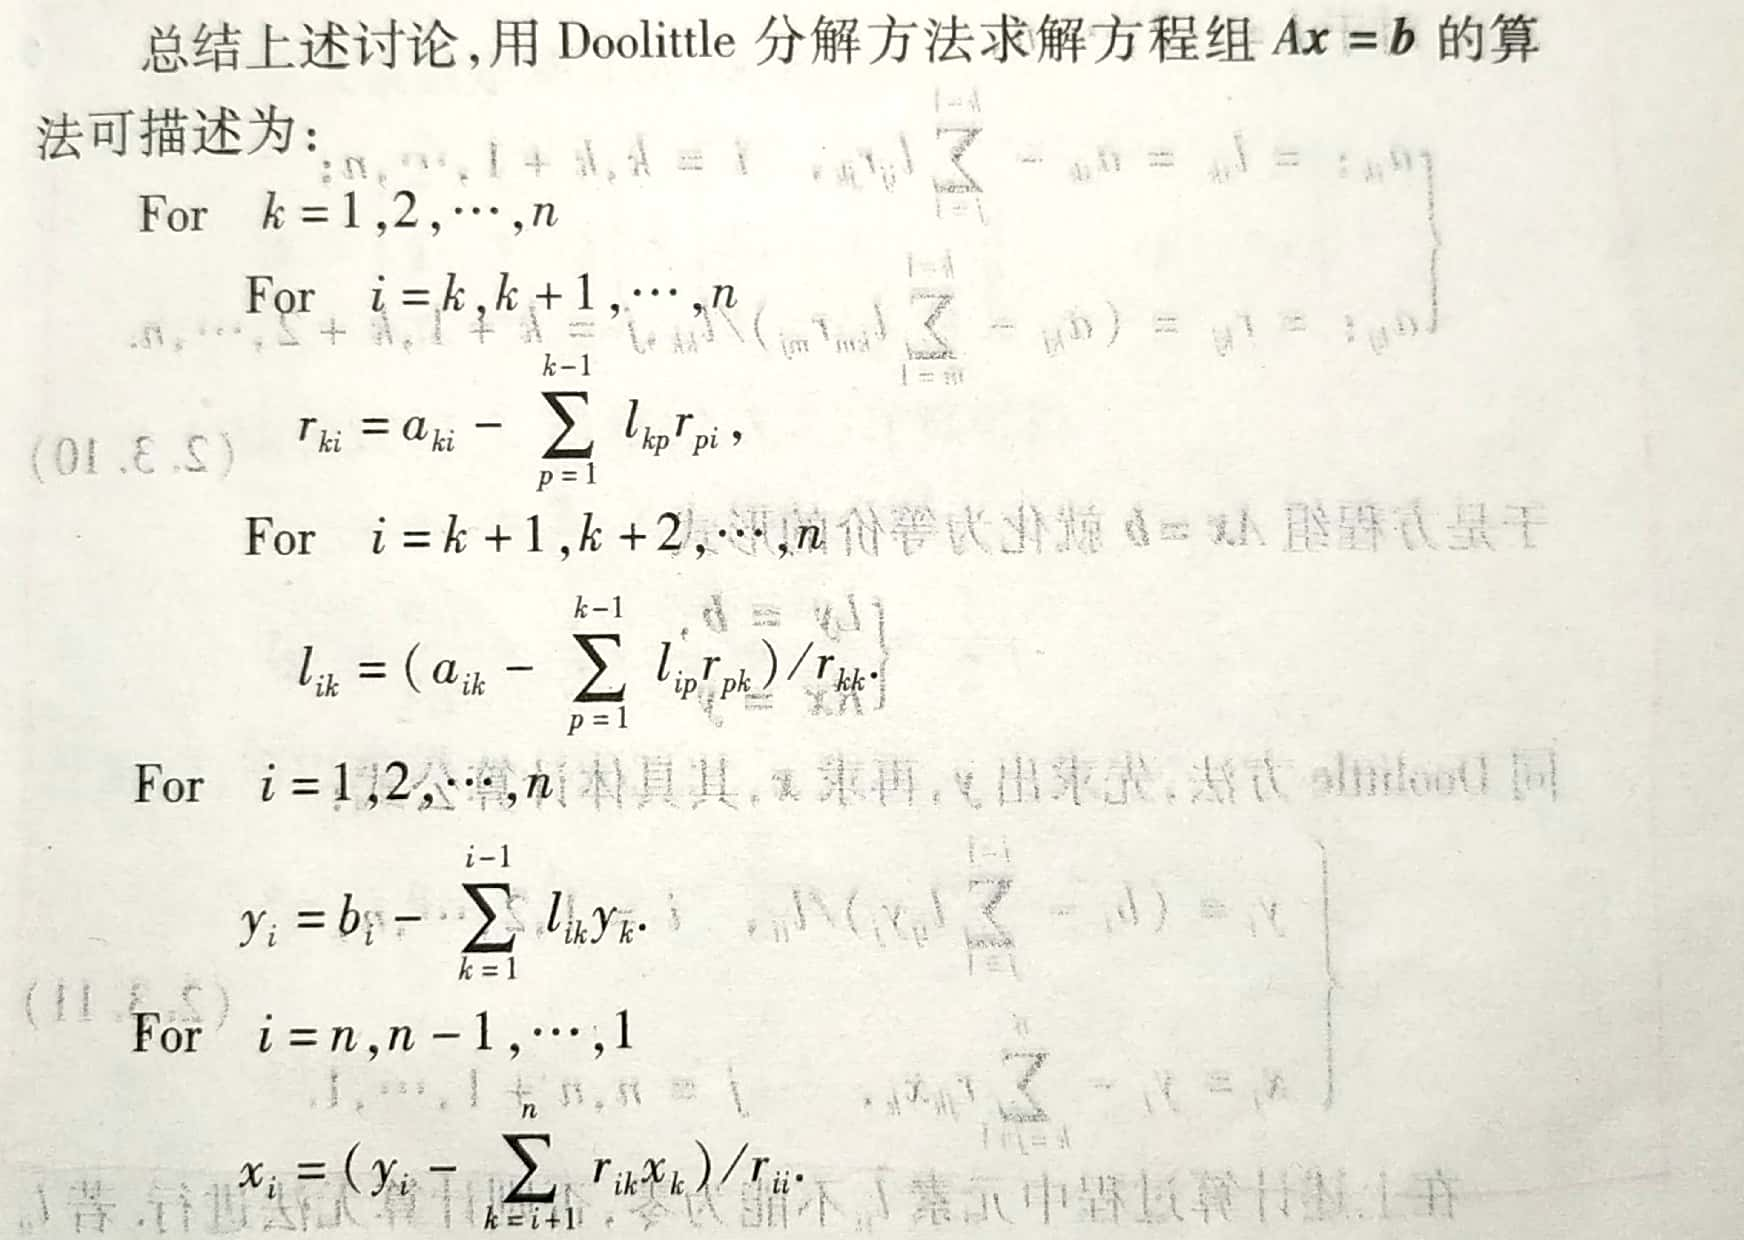 总结上述讨论,用 Doolittle 分解方法求解方程组 Ax = b 的算
法可描述为:
For k = 1,2,⋯,n
For i = k,k + 1,⋯,n
r_{ki} = a_{ki} - \sum_{p=1}^{k-1} l_{kp}r_{pi},
For i = k + 1,k + 2,⋯,n
l_{ik} = (a_{ik} - \sum_{p=1}^{k-1} l_{ip}r_{pk})/r_{kk}.
For i = 1,2,⋯,n
y_i = b_i - \sum_{k=1}^{i-1} l_{ik}y_k.
For i = n,n - 1,⋯,1
x_i = (y_i - \sum_{k=i+1}^{n} r_{ik}x_k)/r_{ii}.